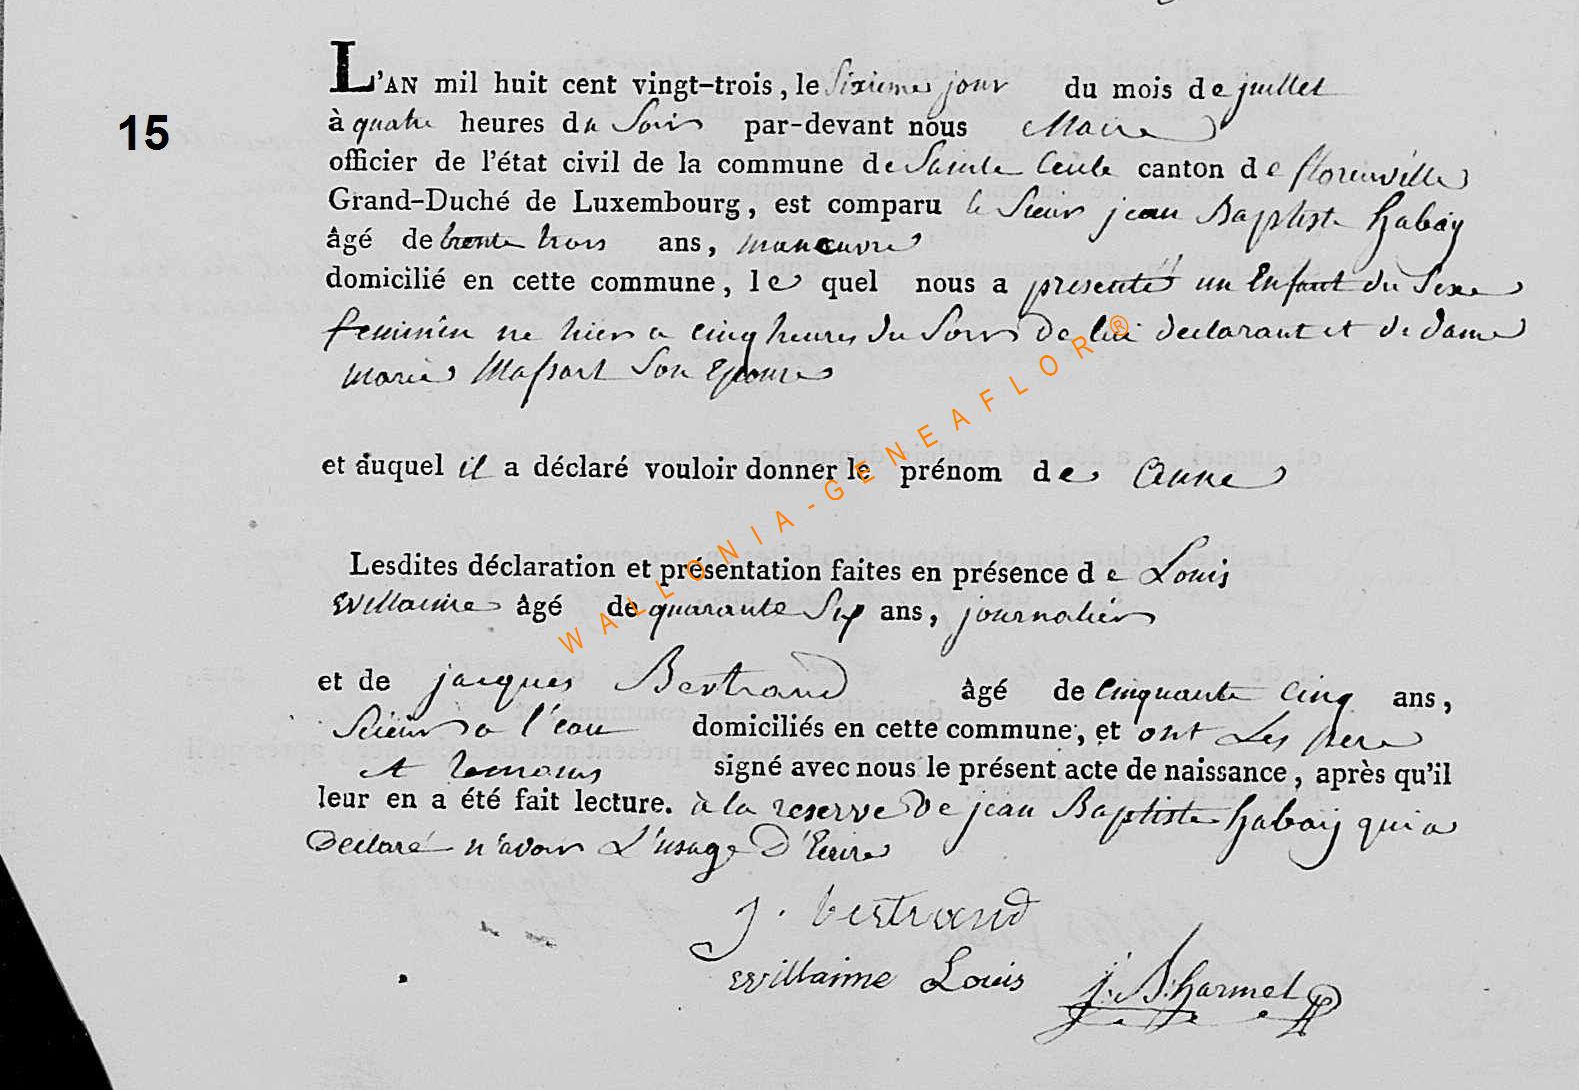 15
L'AN mil huit cent vingt-trois, le Sixieme jour du mois de juillet
à quatre heures du Soir par-devant nous Maire
officier de l'état civil de la commune de Sainte Cecile canton de florenville
Grand-Duché de Luxembourg, est comparu le Sieur jean Baptiste habay
âgé de trente trois ans, manœuvre
domicilié en cette commune, le quel nous a presenté un Enfant du Sexe
feminin ne hier a cinq heures du Soir de lui declarant et de dame
marie Massart Son Epouse
et auquel il a déclaré vouloir donner le prénom de Anne
Lesdites déclaration et présentation faites en présence de Louis
Willaime âgé de quarante Six ans, journalier
et de jacques Bertrand âgé de Cinquante Cinq ans,
Scieur a l'eau domiciliés en cette commune, et ont Les pere
et temoins signé avec nous le présent acte de naissance, après qu'il
leur en a été fait lecture. à la reserve De jean Baptiste habay qui a
Declaré n'avoir L'usage D'Ecrire
j. bertrand
Willaime Louis j. B. harmel
WALLONIA-GENEAFLOR®